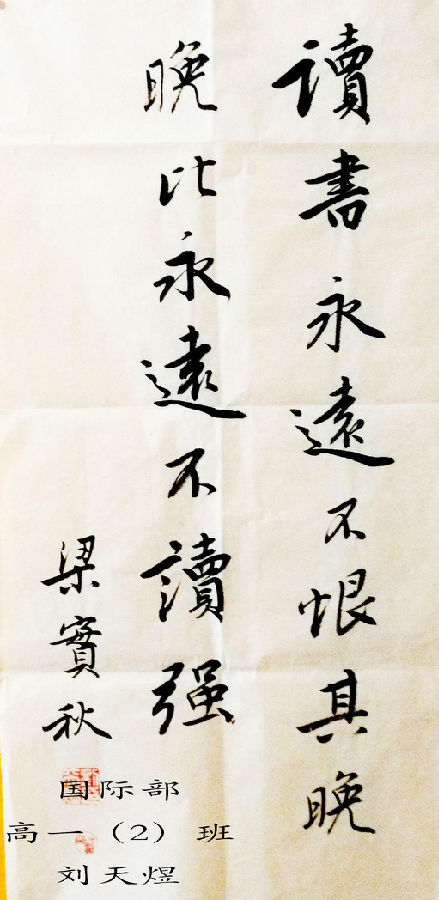 讀書永遠不恨其晚
晚比永遠不讀强
梁實秋
国际部
高一（2）班
刘天煜